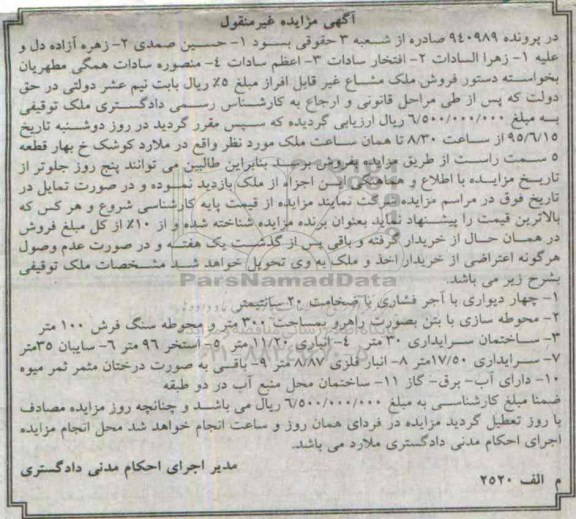 آگهی مزایده غیرمنقول
در پرونده ۹۴۰۹۸۹ صادره از شعبه ۳ حقوقی بسود ۱- حسین صمدی ۲- زهره آزاده دل و
علیه ۱- زهرا السادات ۲- افتخار سادات ۳- اعظم سادات ۴- منصوره سادات همگی مطهریان
بخواسته دستور فروش ملک مشاع غیر قابل افراز مبلغ ۵٪ ریال بابت نیم عشر دولتی در حق
دولت که پس از طی مراحل قانونی و ارجاع به کارشناس رسمی دادگستری ملک توقیفی
به مبلغ ۶/۵۰۰/۰۰۰/۰۰۰ ریال ارزیابی گردیده که سپس مقرر گردید در روز دوشنبه تاریخ
۹۵/۶/۱۵ از ساعت ۸/۳۰ تا همان ساعت ملک مورد نظر واقع در ملارد کوشک خ بهار قطعه
۵ سمت راست از طریق مزایده بفروش برسد بنابراین طالبین می توانند پنج روز جلوتر از
تاریخ مزایده با اطلاع و هماهنگی این اجراء از ملک بازدید نموده و در صورت تمایل در
تاریخ فوق در مراسم مزایده شرکت نمایند مزایده از قیمت پایه کارشناسی شروع و هر کس که
بالاترین قیمت را پیشنهاد نماید بعنوان برنده مزایده شناخته شده و از ۱۰٪ از کل مبلغ فروش
در همان حال از خریدار گرفته و باقی پس از گذشت یک هفته و در صورت عدم وصول
هرگونه اعتراضی از خریدار اخذ و ملک به وی تحویل خواهد شد مشخصات ملک توقیفی
بشرح زیر می باشد.
ParsNamadData
۱- چهار دیواری با آجر فشاری با ضخامت ۲۰ سانتیمتر
۲- محوطه سازی با بتن بصورت راهرو بمساحت ۳۰۰ متر و محوطه سنگ فرش ۱۰۰ متر
۳- ساختمان سرایداری ۳۰ متر ۴- انباری ۱۱/۲۰ متر ۵- استخر ۹۶ متر ۶- سایبان ۳۵متر
۷- سرایداری ۱۷/۵۰متر ۸- انبار فلزی ۸/۸۷ متر ۹- باقی به صورت درختان مثمر ثمر میوه
۱۰- دارای آب- برق- گاز ۱۱- ساختمان محل منبع آب در دو طبقه
ضمنا مبلغ کارشناسی به مبلغ ۶/۵۰۰/۰۰۰/۰۰۰ ریال می باشد و چنانچه روز مزایده مصادف
با روز تعطیل گردید مزایده در فردای همان روز و ساعت انجام خواهد شد محل انجام مزایده
اجرای احکام مدنی دادگستری ملارد می باشد.
مدیر اجرای احکام مدنی دادگستری
م الف ۲۵۲۰